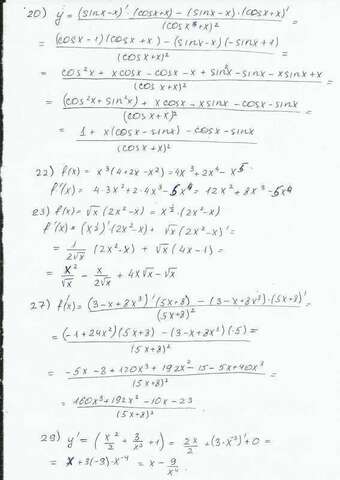 20) y' = (sinx-x)'·(cosx+x) - (sinx-x)·(cosx+x)' / (cosx+x)² =
= (cosx-1)(cosx+x) - (sinx-x)(-sinx+1) / (cosx+x)² =
= cos²x + xcosx - cosx - x + sin²x - sinx - xsinx + x / (cosx+x)² =
= (cos²x + sin²x) + xcosx - xsinx - cosx - sinx / (cosx+x)² =
= 1 + x(cosx - sinx) - cosx - sinx / (cosx+x)²
22) f(x) = x³(4+2x-x²) = 4x³ + 2x⁴ - x⁵
f'(x) = 4·3x² + 2·4x³ - 5x⁴ = 12x² + 8x³ - 5x⁴
23) f(x) = √x (2x²-x) = x^½·(2x²-x)
f'(x) = (x^½)'(2x²-x) + √x (2x²-x)' =
= 1/2√x (2x²-x) + √x (4x-1) =
= x²/√x - x/2√x + 4x√x - √x
27) f'(x) = (3-x+8x³)'(5x+8) - (3-x+8x³)·(5x+8)' / (5x+8)² =
= (-1+24x²)(5x+8) - (3-x+8x³)(·5) / (5x+8)² =
= -5x - 8 + 120x³ + 192x² - 15 - 5x + 40x³ / (5x+8)² =
= 160x³ + 192x² - 10x - 23 / (5x+8)²
29) y' = (x²/2 + 3/x³ + 1) = 2x/2 + (3·x⁻³)' + 0 =
= x + 3(-3)·x⁻⁴ = x - 9/x⁴